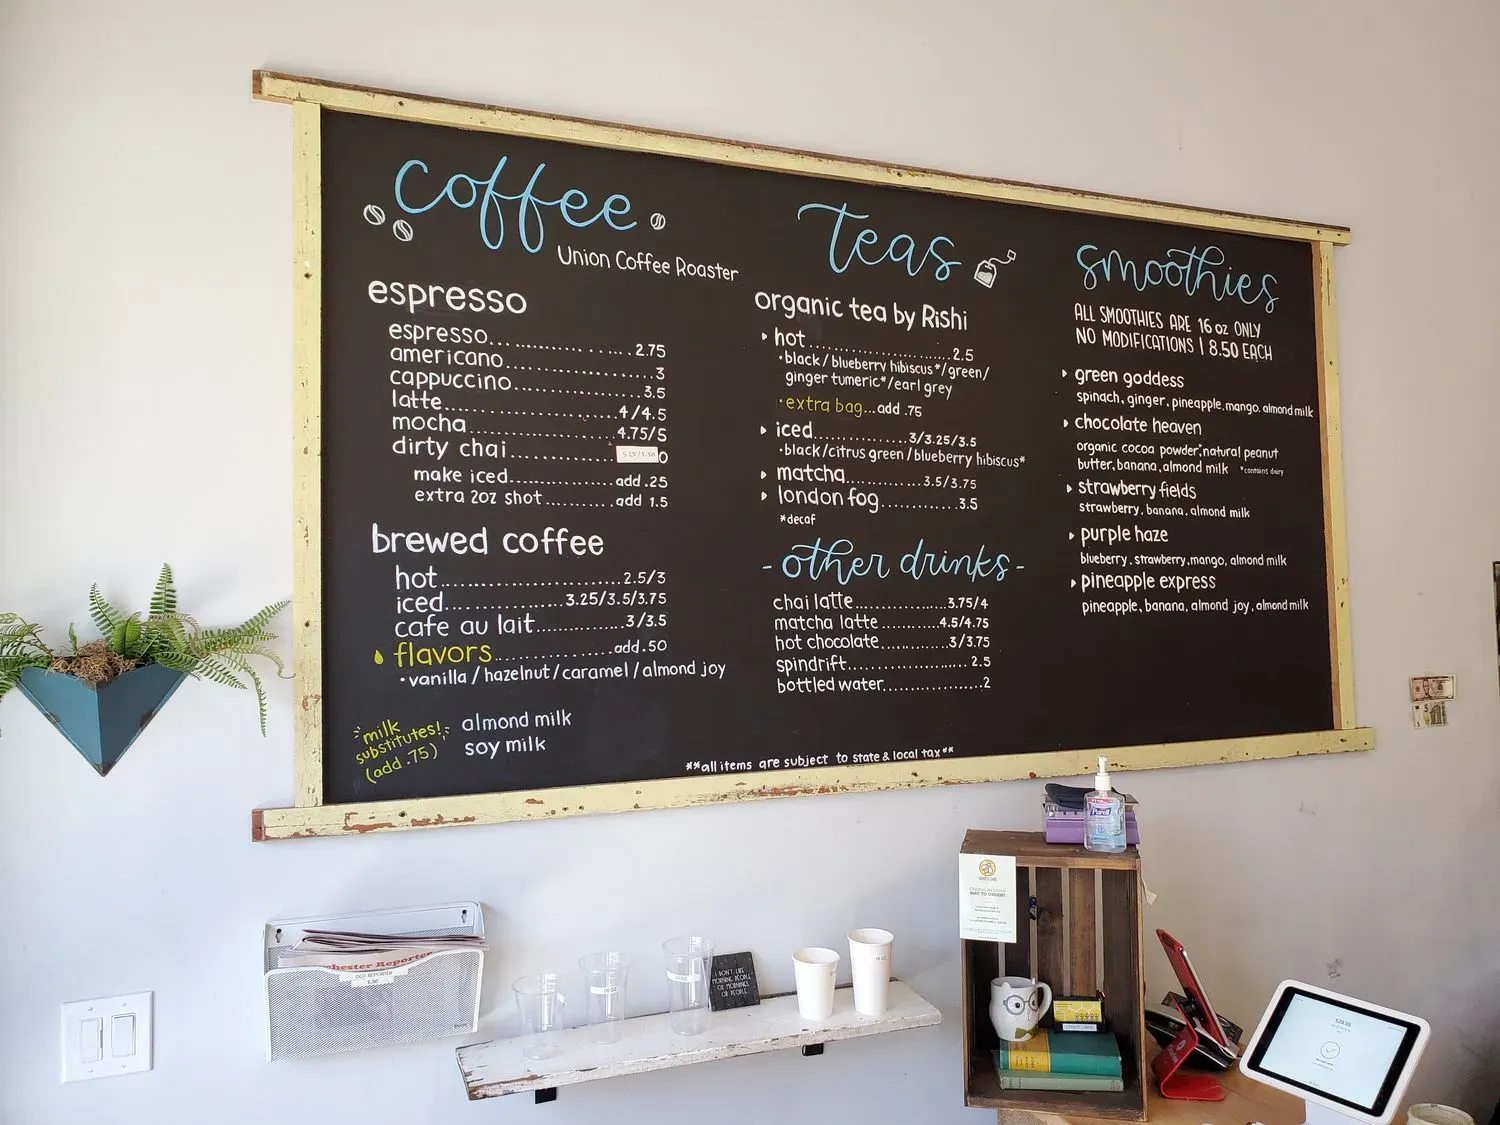 coffee
Union Coffee Roaster
espresso
espresso.................2.75
americano....................3
cappuccino..................3.5
latte........................4/4.5
mocha....................4.75/5
dirty chai..............5.25/5.50
make iced..............add .25
extra 2oz shot..........add 1.5
brewed coffee
hot........................2.5/3
iced................3.25/3.5/3.75
cafe au lait.............3/3.5
flavors.................add .50
•vanilla / hazelnut / caramel / almond joy
milk
substitutes!
(add .75)
almond milk
soy milk
Teas
organic tea by Rishi
hot........................2.5
•black / blueberry hibiscus* / green /
ginger tumeric* / earl grey
•extra bag...add .75
iced..............3/3.25/3.5
•black / citrus green / blueberry hibiscus*
matcha..............3.5/3.75
london fog..............3.5
*decaf
-other drinks-
chai latte..............3.75/4
matcha latte.........4.5/4.75
hot chocolate...........3/3.75
spindrift..................2.5
bottled water................2
smoothies
ALL SMOOTHIES ARE 16 oz ONLY
NO MODIFICATIONS | 8.50 EACH
green goddess
spinach, ginger, pineapple, mango, almond milk
chocolate heaven
organic cocoa powder,* natural peanut
butter, banana, almond milk *contains dairy
strawberry fields
strawberry, banana, almond milk
purple haze
blueberry, strawberry, mango, almond milk
pineapple express
pineapple, banana, almond joy, almond milk
**all items are subject to state & local tax**
Purell
WAY TO ORDER!
chester Reporter
DOT REPORTER
I DON'T LIKE
MORNING PEOPLE
OR MORNINGS
OR PEOPLE.